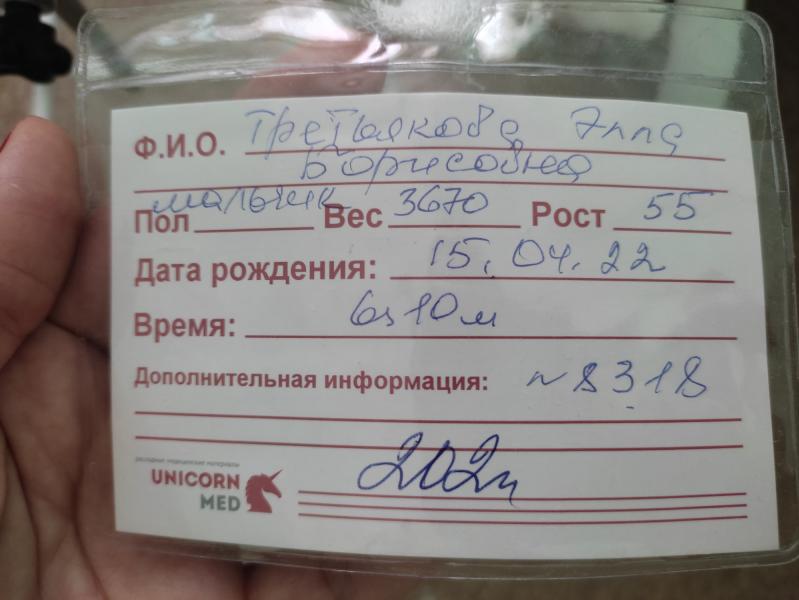 Ф.И.О. Третьякова Элла
Борисовна
Пол мальчик Вес 3670 Рост 55
Дата рождения: 15.04.22
Время: 6ч10м
Дополнительная информация: N 8318
расходные медицинские материалы
UNICORN
MED
202п